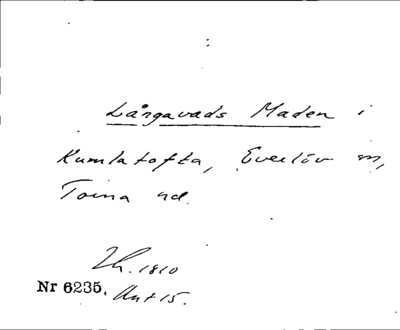 Långavads Maden i
Kumlatofta, Everlöv sn,
Torna hd.
Lh. 1810
Nr 6235. Ant 15.